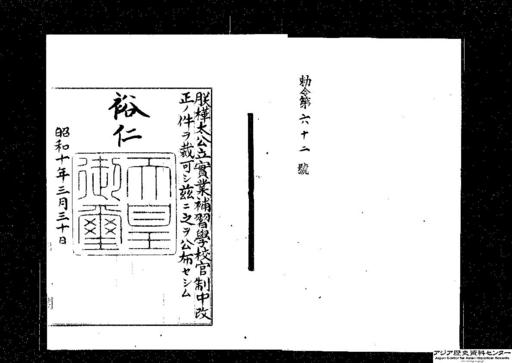 勅令第六十二號
朕樺太公立實業補習學校官制中改
正ノ件ヲ裁可シ茲ニ之ヲ公布セシム
裕仁
天皇
御璽
昭和十年三月三十日
アジア歴史資料センター
Japan Center for Asian Historical Records